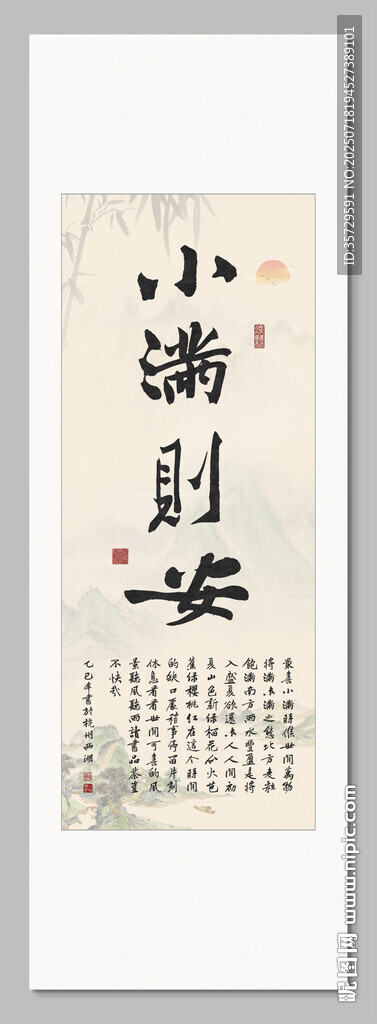 小滿則安
最喜小滿時候世間萬物
將滿未滿之態北方麦粒
飽滿南方雨水豐盈是將
入盛夏欲還未人人間初
夏山色新綠榴花似火芭
蕉綠櫻桃紅在這个時間
的缺口屋稍事停留片刻
休息看看世間可喜的風
景聽風聽雨讀書品茶豈
不快哉
乙巳年書於杭州西湖
ID:35729591 NO:20250718194527389101
昵图网 www.nipic.com